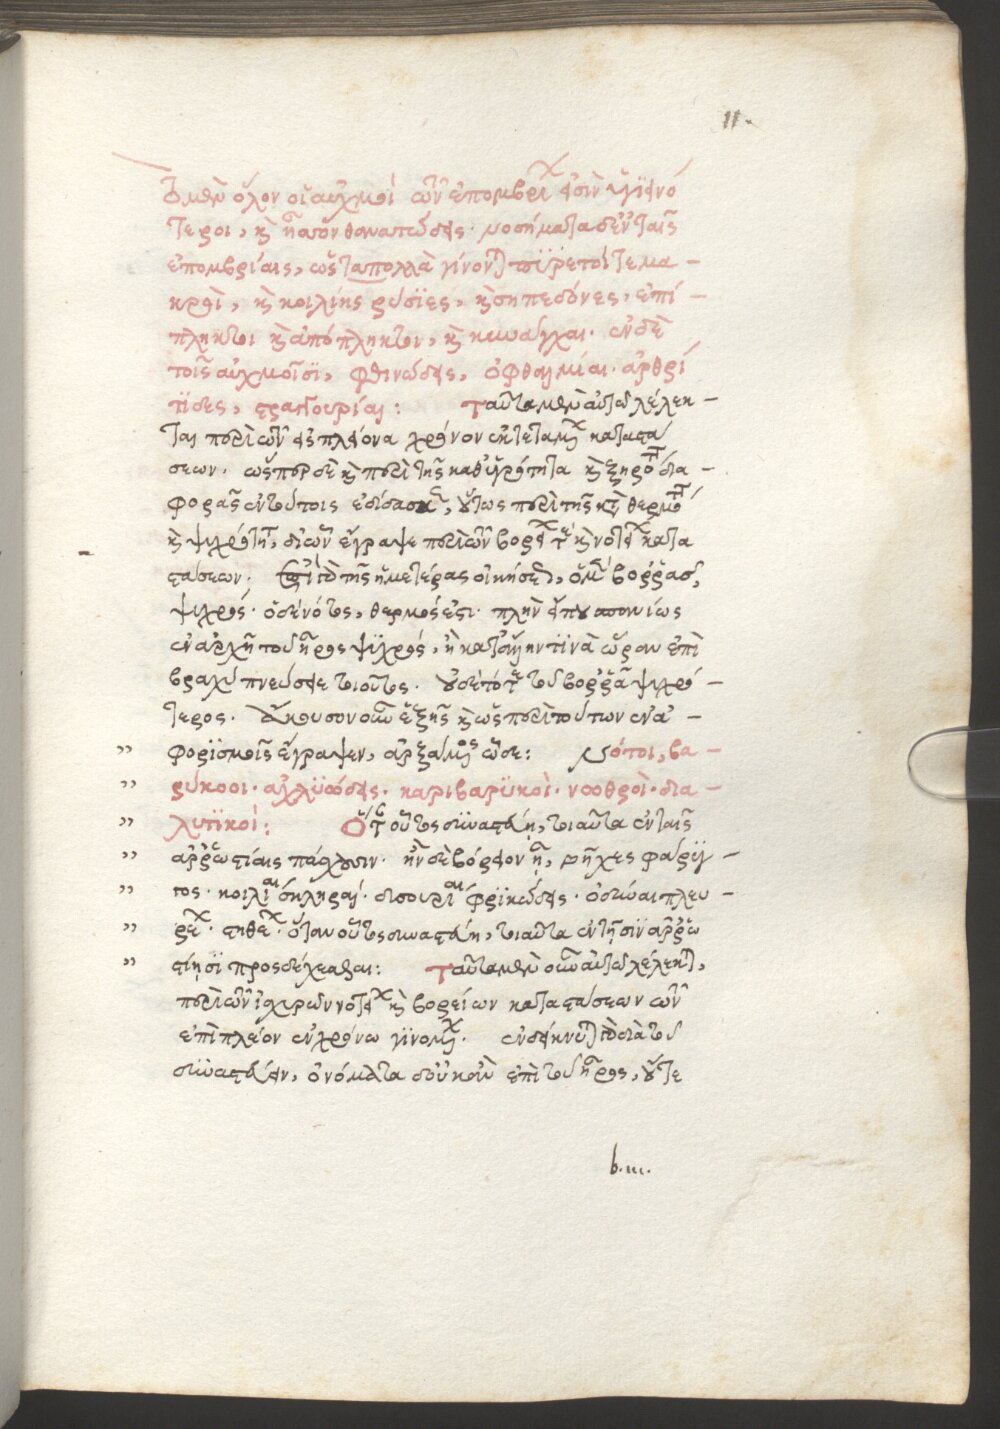 11.
Τὸ μὲν ὅλον οἱ αὐχμοὶ τῶν ἐπομβριῶν εἰσὶν ὑγιεινό
τεροι, καὶ ἧττον θανατώδεις· νοσήματα δ' ἐν ταῖς
ἐπομβρίαις, ὡς τὰ πολλὰ γίνονται πυρετοί τε μα –
κροὶ, καὶ κοιλίης ῥύσϊες, καὶ σηπεδόνες, ἐπί –
πληκτοι καὶ ἀπόπληκτοι, καὶ κυνάγχαι· ἐν δὲ
τοῖς αὐχμοῖσϊ, φθινώδεις, ὀφθαλμίαι· ἀρθρί
τϊδες, στραγγουρίαι: Ταῦτα μὲν αὐτῷ λέλεκ –
ται περὶ τῶν εἰς πλείονα χρόνον ἐκτεταμένων καταστά
σεων· ὥσπερ δὲ καὶ περὶ τῆς καθ' ὑγρότητα καὶ ξηρότητα δια –
φορᾶς ἐν τούτοις ἐδίδασκεν, οὕτως περὶ τῆς κατὰ θερμότητα
καὶ ψυχρότητα, δι' ὧν ἔγραψε περὶ τῶν βορείων τε καὶ νοτείων κατα
στάσεων· ἐπὶ τῆς ἡμετέρας οἰκήσεως, ὁ μὲν βορρᾶς,
ψυχρός· ὁ δὲ νότος, θερμός ἐστι· πλὴν εἴ που σπανίως
ἐν ἀρχῇ τοῦ ἦρος ψϋχρός, ἢ κατ' ἄλλην τϊνὰ ὥραν ἐπὶ
βραχὺ πνεύσειε τοιοῦτος· οὐδέποτε τοῦ βορρᾶ ψυχρό –
τερος. Ἄκουσον οὖν ἑξῆς καὶ ὡς περὶ τούτων ἐν ἀ –
φορϊσμοῖς ἔγραψεν, ἀρξάμενος ὧδε: Νότοι, βα –
ρύκοοι· ἀχλϋώδεις· καρηβαρϋκοὶ· νωθροὶ· δια –
λυτϊκοί: Ὅταν οὗτος δϋναστεύῃ, τοιαῦτα ἐν ταῖς
ἀρρωστίαις πάσχουσιν· ἢν δὲ βόρειον ᾖ, βῆχες φάρϋγ –
γος· κοιλίαι σκληραί· δυσουρίαι φρϊκώδεις· ὀδύναι πλευ –
ρέων· στηθέων· ὅταν οὗτος δυναστεύῃ, τοιαῦτα ἐν τῇσϊν ἀρρω
στίῃσϊ προσδέχεσθαι: Ταῦτα μὲν οὖν αὐτῷ λέλεκται,
περὶ τῶν ἰσχυρῶν νοτείων καὶ βορείων καταστάσεων τῶν
ἐπὶ πλέον ἐν χρόνῳ γϊνομένων· ἐνδείκνυται τὸ διὰ τοῦ
δϋναστεύειν, ὀνόματα οὐκ ἂν ἐπὶ τοῦ ἦρος, οὔτε
b.iii.